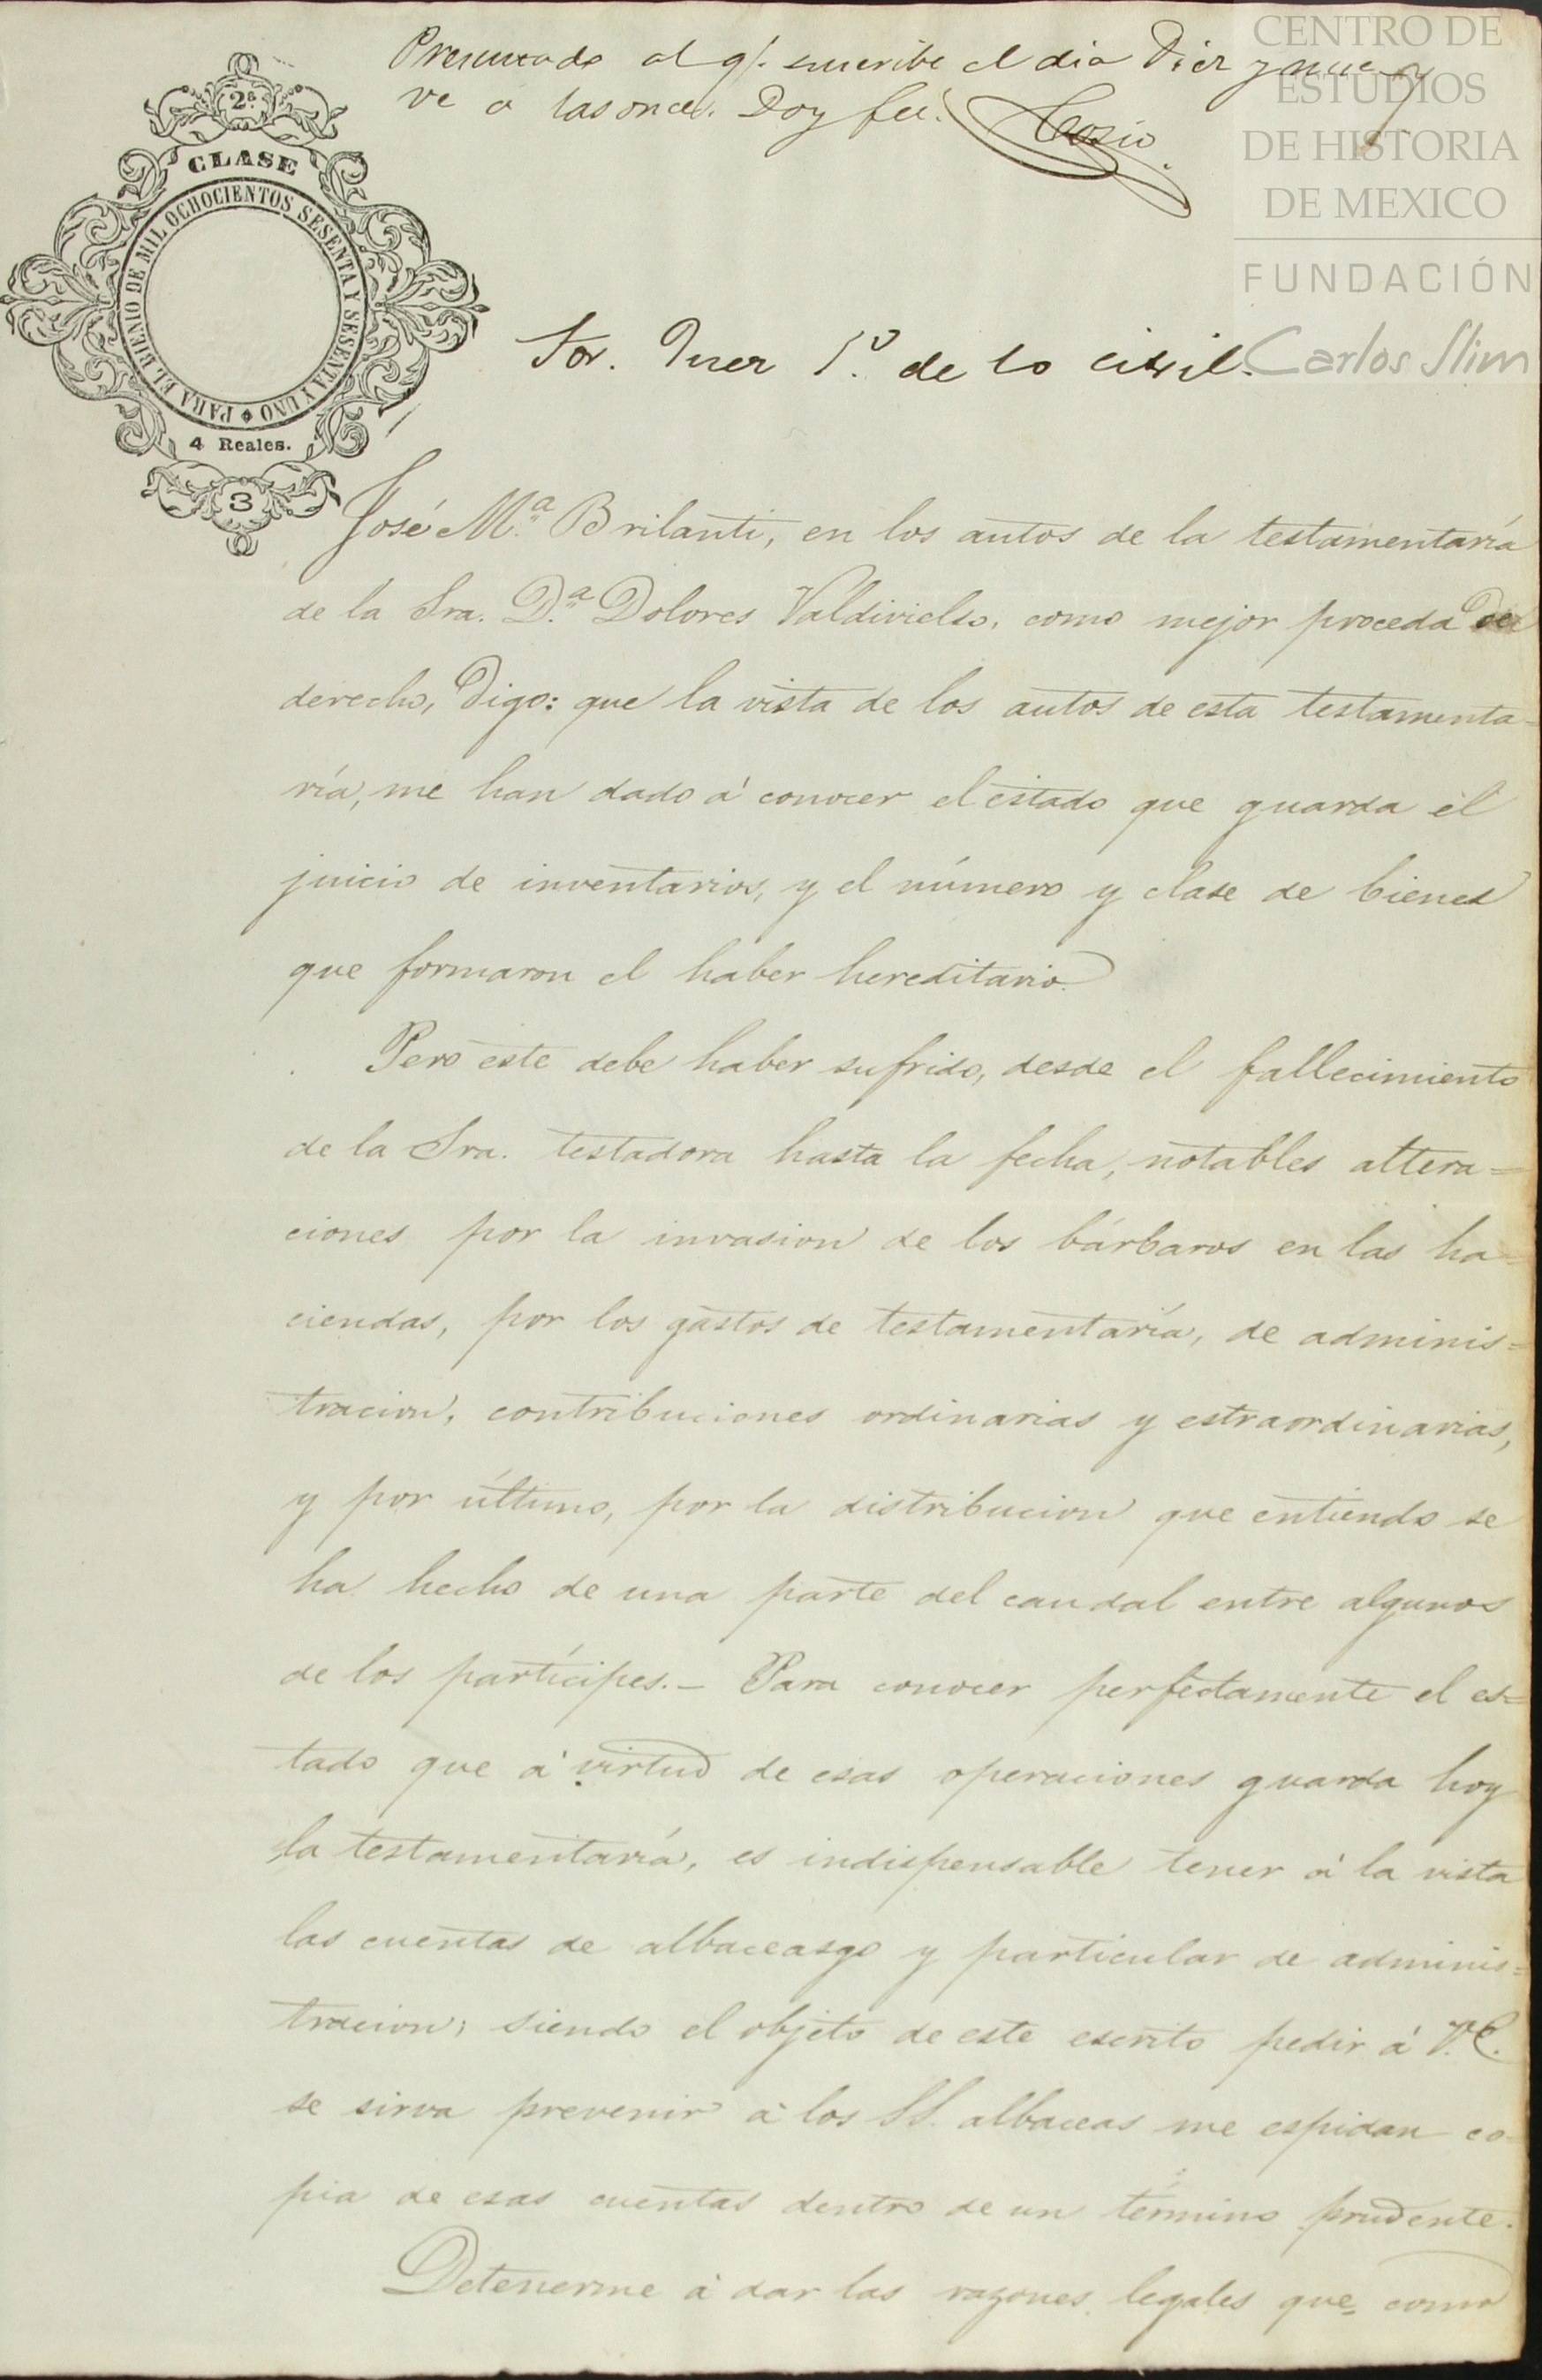 Presentado al q/. suscribe el dia Diez y nue-
ve a las once. Doy feé. Cosio.
CENTRO DE
ESTUDIOS
DE HISTORIA
DE MEXICO
FUNDACIÓN
Carlos Slim
2ª
CLASE
PARA EL BIENIO DE MIL OCHOCIENTOS SESENTA Y SESENTA Y UNO
4 Reales.
3
Sor. Juez 1º. de lo civil.
José M.ª Brilanti, en los autos de la testamentaría
de la Sra. D.ª Dolores Valdivielso, como mejor proceda de
derecho, Digo: que la vista de los autos de esta testamenta=
ría, me han dado á conocer el estado que guarda el
juicio de inventarios, y el número y clase de bienes
que formaron el haber hereditario.
Pero este debe haber sufrido, desde el fallecimiento
de la Sra. testadora hasta la fecha, notables altera=
ciones por la invasion de los bárbaros en las ha=
ciendas, por los gastos de testamentaría, de adminis=
tracion, contribuciones ordinarias y estraordinarias,
y por último, por la distribucion que entiendo se
ha hecho de una parte del caudal entre algunos
de los partícipes.- Para conocer perfectamente el es=
tado que á virtud de esas operaciones guarda hoy
la testamentaría, es indispensable tener á la vista
las cuentas de albaceasgo y particular de adminis=
tracion; siendo el objeto de este escrito pedir á V.E.
se sirva prevenir á los SS. albaceas me espidan co-
pia de esas cuentas dentro de un término prudente.
Detenerme á dar las razones legales que como